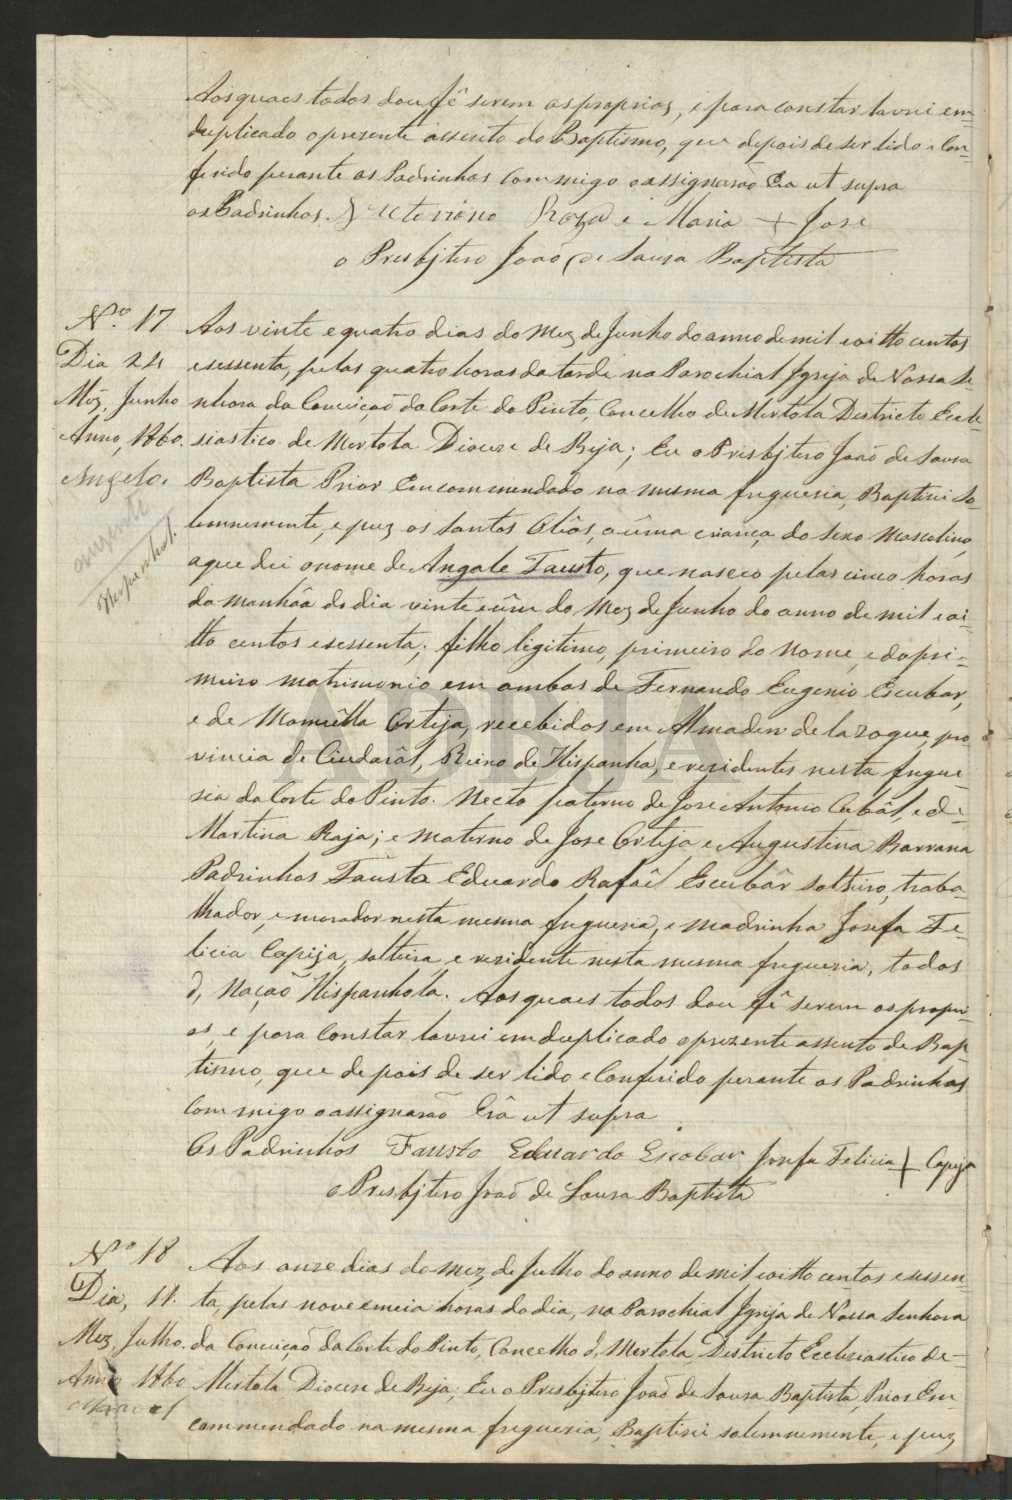 Aos quaes todos dou fê serem os proprios, e para constar lavrei em
duplicado o presente assento do Baptismo, que depois de ser lido e Con-
ferido perante os Padrinhos Commigo o assignarão Era ut supra
os Padrinhos Roza e Maria + Jose
o Presbjtero João de Sousa Baptista
Nº 17
Dia 24
Mez, Junho
Anno, 1860.
Angelo.
Hespanhol.
Aos vinte e quatro dias do Mez de Junho do anno de mil e oitto centos
e sessenta, pelas quatro horas da tarde na Parochial Igreja de Nossa Se-
nhora da Conceição da Corte do Pinto, Concelho de Mertola Districto Eccle-
siastico de Mertola Diocese de Beja; Eu o Presbjtero João de Sousa
Baptista Prior Emcommendado na mesma freguesia, Baptisei So-
lemnemente, e puz os Santos Olêos, a ûma criança do sexo Masculino,
a que dei o nome de Angale Fausto, que nasceo pelas cinco horas
da manhãa do dia vinte e ûm do Mez de Junho do anno de mil e oi-
tto centos e sessenta; filho legitimo, primeiro do Nome, e do pri-
meiro matrimonio em ambos de Fernando Eugenio Escubar,
e de Manuêlla Ortija, recebidos em Almaden de la zogue, pro
vincia de Ciudarâl, Reino de Hispanha, e residentes nesta fregue-
sia da Corte do Pinto. Necto paterno de Jose Antonio Cubâl, e de
Martina Raja; e materno de Jose Ortija e Augustina Barrana
Padrinhos Fausto Eduardo Rafaêl Escubâr solteiro, traba-
lhador, e morador nesta mesma freguesia, e madrinha Josefa Fe-
licia Capija, solteira, e residente nesta mesma freguesia, todos
d, Nação Hispanhola. Aos quaes todos dou fê serem os propri-
os, e para Constar lavrei em duplicado o prezente assento de Bap-
tismo, que depois de ser lido e Conferido perante os Padrinhos,
Commigo o assignarão Erâ ut supra
Os Padrinhos Fausto Eduardo Escobar Josefa Felicia + Capija
o Presbjtero João de Sousa Baptista
Nº 18
Dia, 11.
Mez, Julho.
Anno 1860
Aos onze dias do mez de Julho do anno de mil e oitto centos e sessen-
ta, pelas nove e meia horas do dia, na Parochial Igreja de Nossa Senhora
da Conceição da Corte do Pinto, Concelho d, Mertola Districto Ecclesiastico de
Mertola Diocese de Beja, Eu o Presbjtero João de Sousa Baptista, Prior Em-
commendado na mesma freguesia, Baptisei solemnemente, e puz